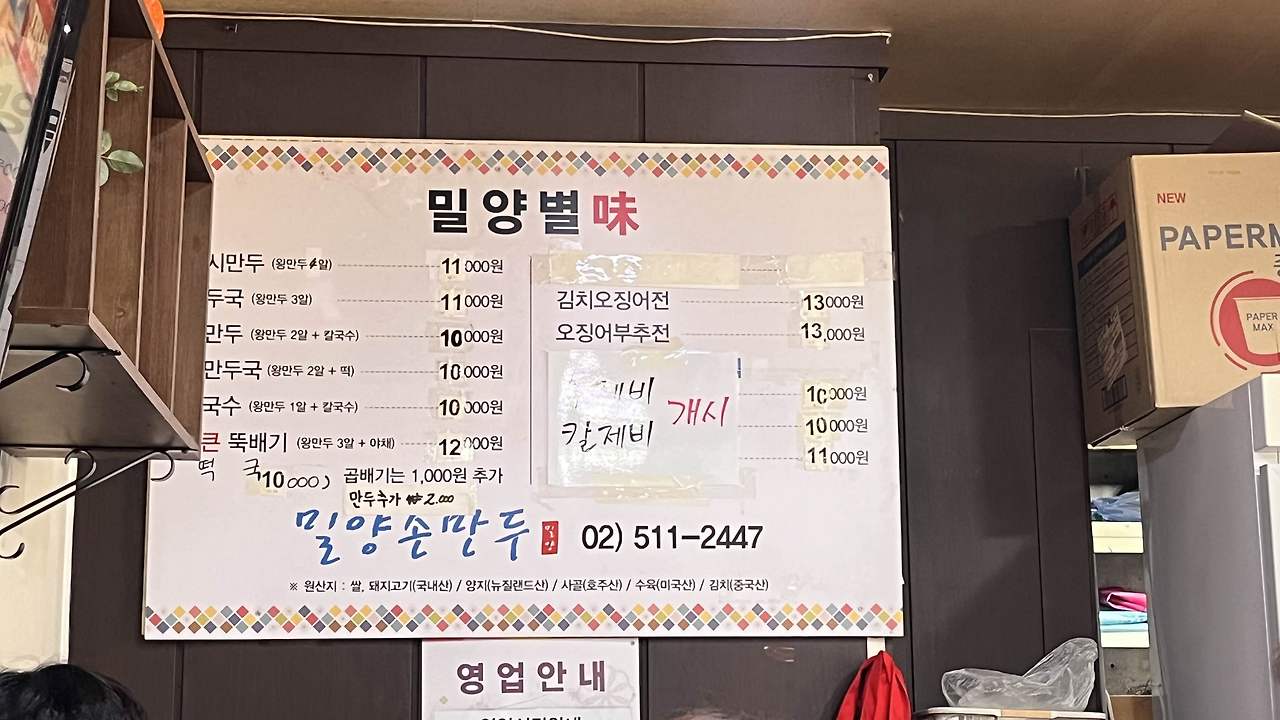 밀양별味
시만두 (왕만두 4알) 11,000원
두국 (왕만두 3알) 11,000원
만두 (왕만두 2알 + 칼국수) 10,000원
만두국 (왕만두 2알 + 떡) 10,000원
국수 (왕만두 1알 + 칼국수) 10,000원
큰 뚝배기 (왕만두 3알 + 야채) 12,000원
떡 국 10,000
곱배기는 1,000원 추가
만두추가 ₩2.000
김치오징어전 13,000원
오징어부추전 13,000원
제비
칼제비
개시
10,000원
10,000원
11,000원
밀양손만두 밀양 02) 511-2447
※ 원산지 : 쌀, 돼지고기(국내산) / 양지(뉴질랜드산) / 사골(호주산) / 수육(미국산) / 김치(중국산)
영업안내
NEW
PAPERM
PAPER
MAX